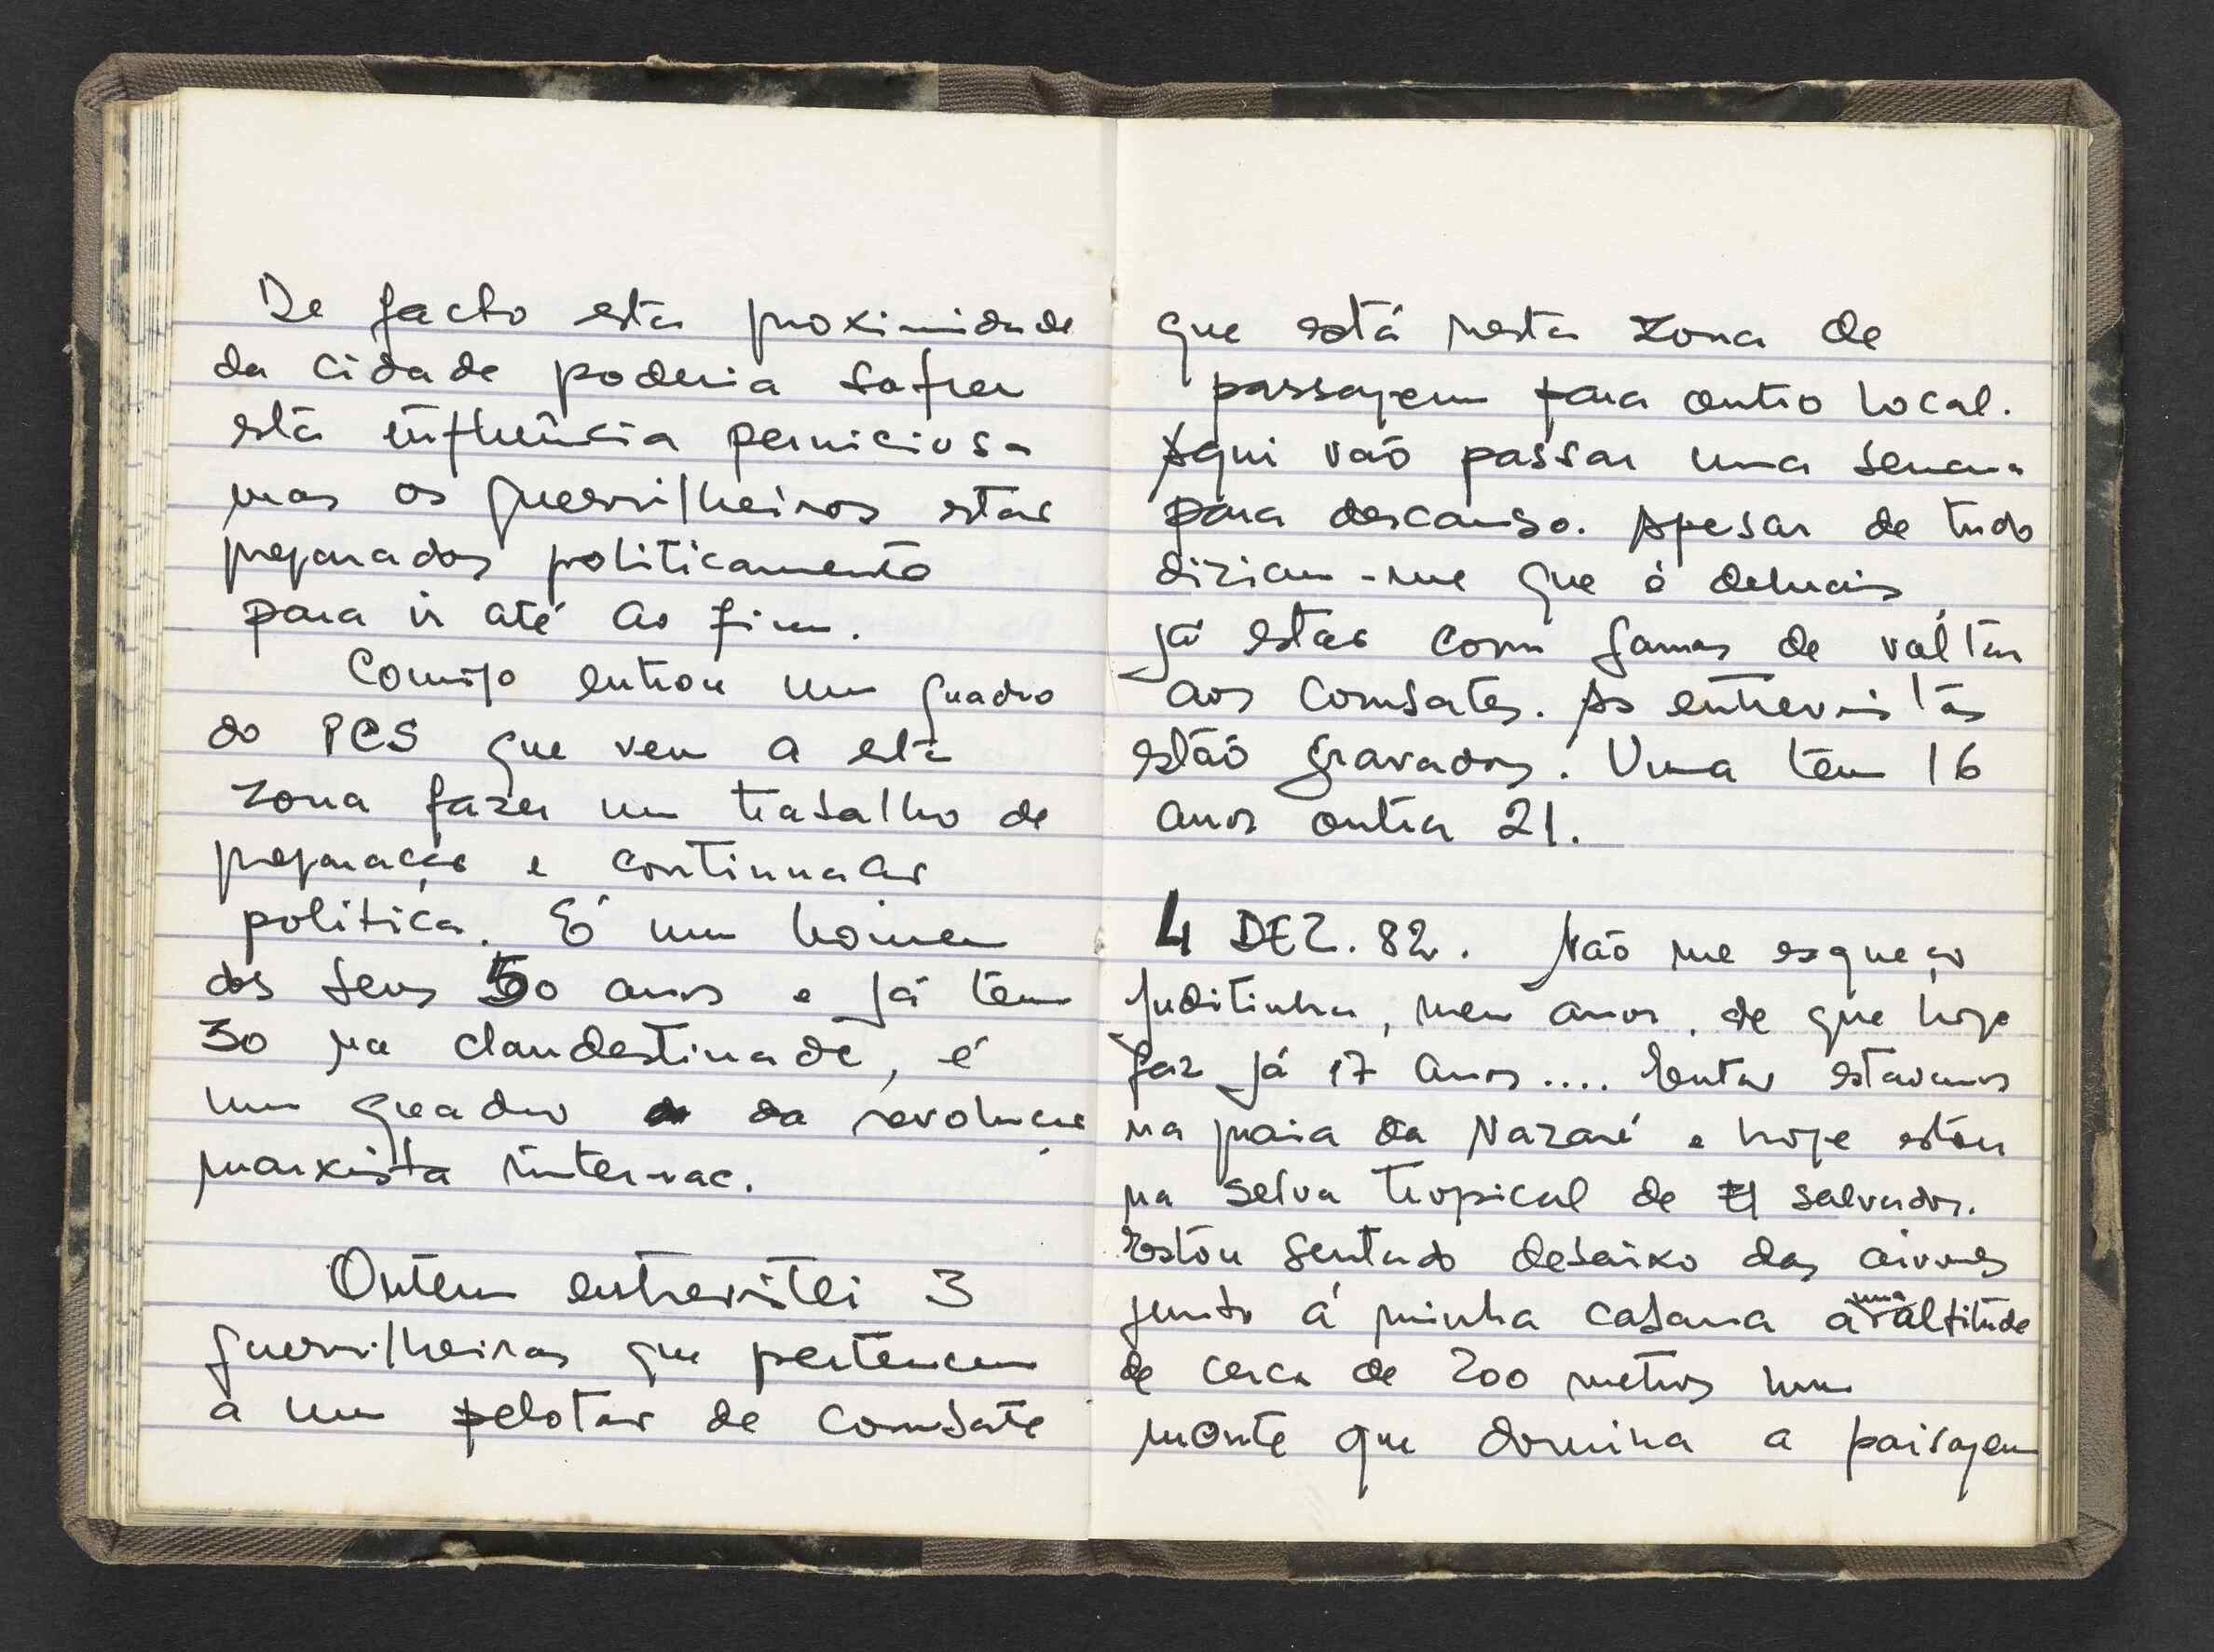 De facto esta proximidade
da cidade poderia sofrer
esta influência perniciosa
mas os guerrilheiros estão
preparados politicamente
para ir até ao fim.
Comigo entrou um quadro
do PCS que vem a esta
zona fazer um trabalho de
preparação e continuação
politica. É um homem
dos seus 50 anos e já tem
30 na clandestinade, é
um quadro da revolução
marxista internac.
Ontem entrevistei 3
guerrilheiras que pertencem
a um pelotão de combate
que está nesta zona de
passagem para outro local.
Aqui vão passar uma semana
para descanso. Apesar de tudo
diziam-me que é demais
já estão com ganas de voltar
aos combates. As entrevistas
estão gravadas. Uma tem 16
anos outra 21.
4 DEZ. 82. Não me esqueço
Juditinha, meu amor, de que hoje
faz já 17 anos.... Então estavamos
na praia da Nazaré e hoje estou
na selva tropical de El Salvador.
Estou sentado debaixo das arvores
junto á minha cabana a uma altitude
de cerca de 200 metros num
monte que domina a paisagem